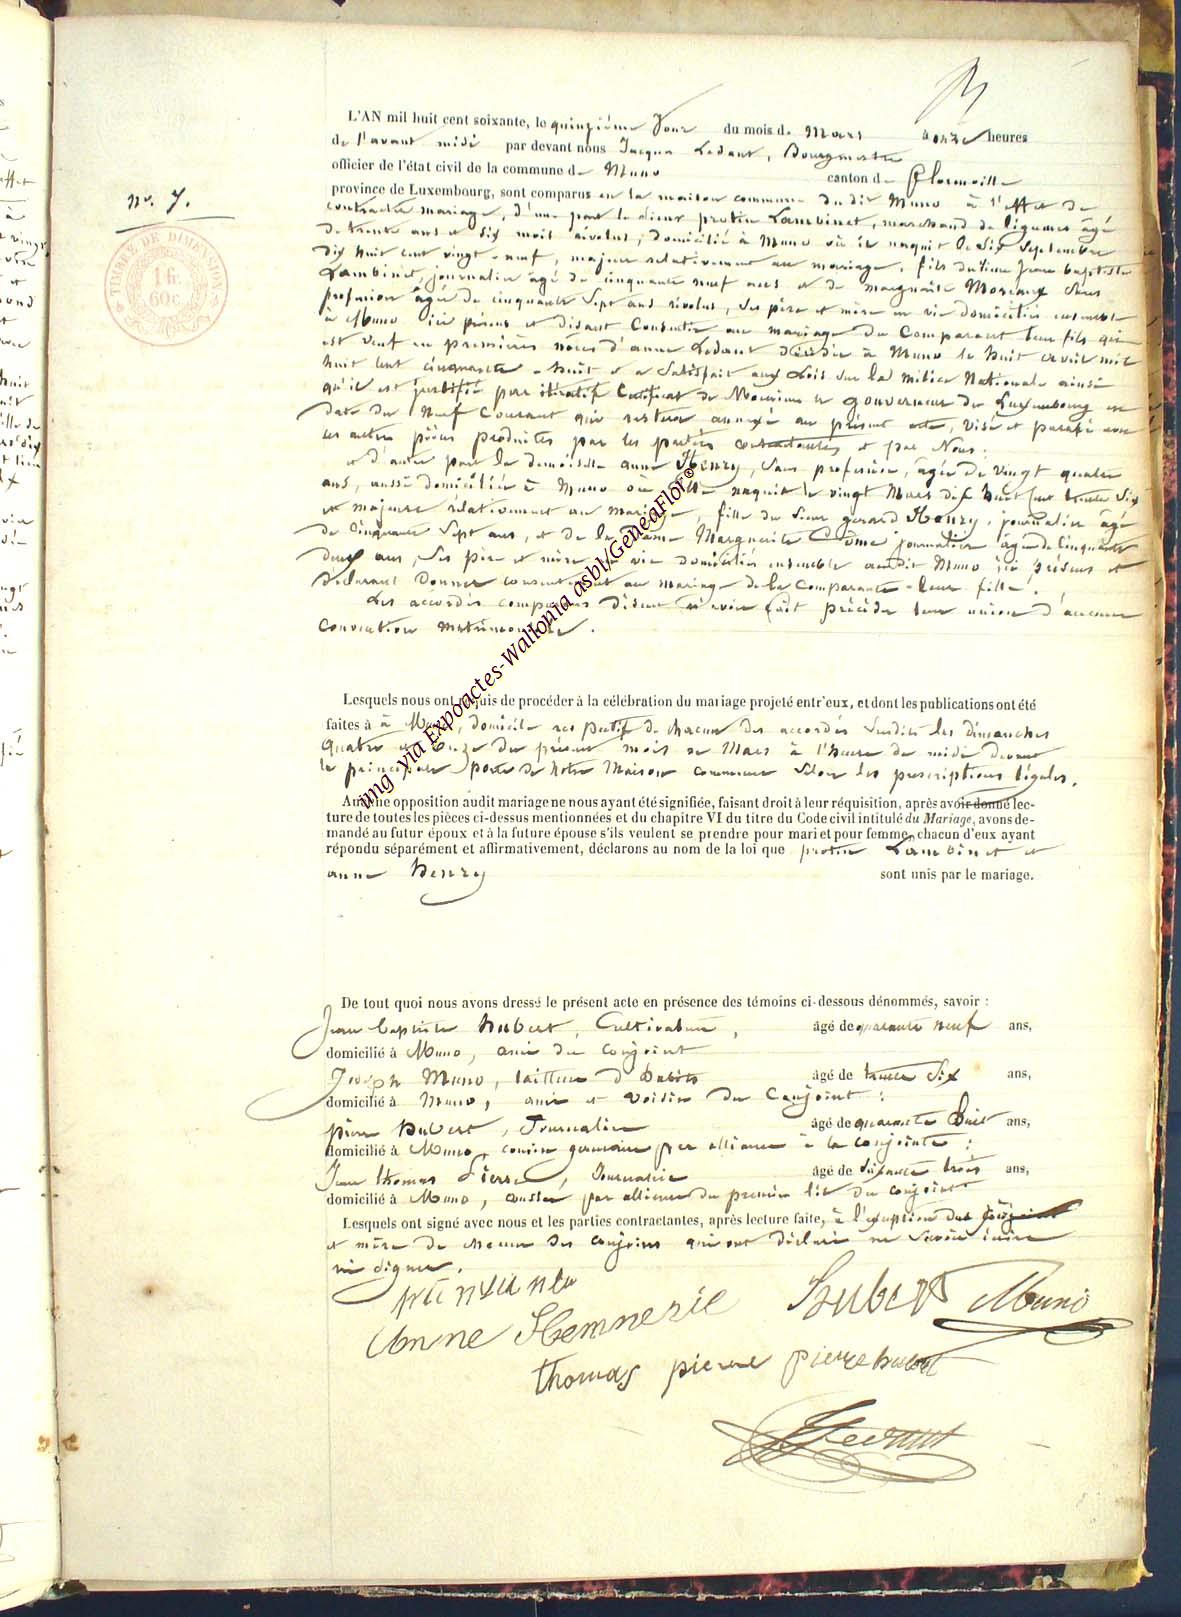 L'AN mil huit cent soixante, le quinzième Jour du mois de Mars à onze heures
de l'avant midi par devant nous Jacques Ledant, Bourgmestre
officier de l'état civil de la commune de Muno canton de Florenville
province de Luxembourg, sont comparus en la maison commune du dit Muno à l'effet de
contracter mariage, d'une part le sieur protin Lambinet, marchand de légumes âgé
de trente ans et six mois révolus, domicilié à Muno où il naquit le Six Septembre
dix huit cent vingt-neuf, majeur relativement au mariage, fils du sieur Jean baptiste
Lambinet, journalier âgé de cinquante neuf ans et de marguerite Moreaux sans
profession âgée de cinquante Sept ans révolus, ses père et mère en vie domiciliés ensemble
à Muno ici présens et disant Consentir au mariage du Comparant leur fils qui
est veuf en premières nôces d'anne Ledant décédée à Muno le huit avril mil
huit cent cinquante-huit et a Satisfait aux Lois sur la milice Nationale ainsi
qu'il est justifié par itératif Certificat de Monsieur le gouverneur du Luxembourg en
date du Neuf Courant qui restera annexé au présent acte, visé et paraphé avec
les autres pièces produites par les parties contractantes et par Nous:
et d'autre part la demoiselle anne Henry, Sans profession, âgée de vingt quatre
ans, aussi domiciliée à Muno où elle naquit le vingt Mars dix huit cent trente Six
et majeure rélativement au mariage, fille du Sieur gerard Henry, journalier âgé
de Cinquante Sept ans, et de la Dame Marguerite Come journalière âgée de Cinquante
deux ans, Ses père et mère en vie domiciliés ensemble audit Muno ici présens et
déclarant Donner consentement au mariage de la Comparante leur fille.
Les accordés comparans disent n'avoir fait précéder leur union d'aucune
Convention matrimoniale.
no. 7.
TIMBRE DE DIMENSION
1 fr.
60 c.
Lesquels nous ont requis de procéder à la célébration du mariage projeté entr'eux, et dont les publications ont été
faites à à Muno, domicile respectif de chacun des accordés susdits les dimanches
quatre et onze du présent mois de Mars à l'heure de midi devant
la principale porte de notre Maison commune selon les prescriptions légales.
Aucune opposition audit mariage ne nous ayant été signifiée, faisant droit à leur réquisition, après avoir donné lec-
ture de toutes les pièces ci-dessus mentionnées et du chapitre VI du titre du Code civil intitulé du Mariage, avons de-
mandé au futur époux et à la future épouse s'ils veulent se prendre pour mari et pour femme, chacun d'eux ayant
répondu séparément et affirmativement, déclarons au nom de la loi que protin Lambinet et
anne henry sont unis par le mariage.
De tout quoi nous avons dressé le présent acte en présence des témoins ci-dessous dénommés, savoir :
Jean baptiste hubert, Cultivateur, âgé de quarante neuf ans,
domicilié à Muno, ami du conjoint
Joseph Muno, tailleur d'habits âgé de trente Six ans,
domicilié à Muno, ami et voisin du Conjoint:
pierre hubert, Journalier âgé de quarante huit ans,
domicilié à Muno, cousin germain par alliance à la conjointe:
Jean thomas Pierre, Journalier âgé de soixante trois ans,
domicilié à Muno, par alliance du premier lit du conjoint
Lesquels ont signé avec nous et les parties contractantes, après lecture faite, à l'exception des
et mère de chacun des conjoins qui ont déclaré ne savoir écrire
ni signer.
Anne Hennerie Hubert Muno
thomas pierre pierre hubert
JLedant
img via Expoactes-Wallonia asbl/GeneaFlor©